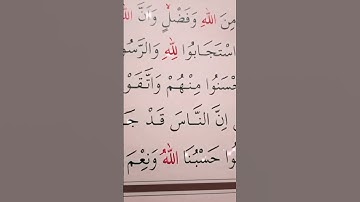 مِنَ اللّٰهِ وَفَضْلٍۙ وَاَنَّ اللّٰهَ
اسْتَجَابُوا لِلّٰهِ وَالرَّسُو
حْسَنُوا مِنْهُمْ وَاتَّقَوْا
اِنَّ النَّاسَ قَدْ جَمَ
وا حَسْبُنَا اللّٰهُ وَنِعْمَ